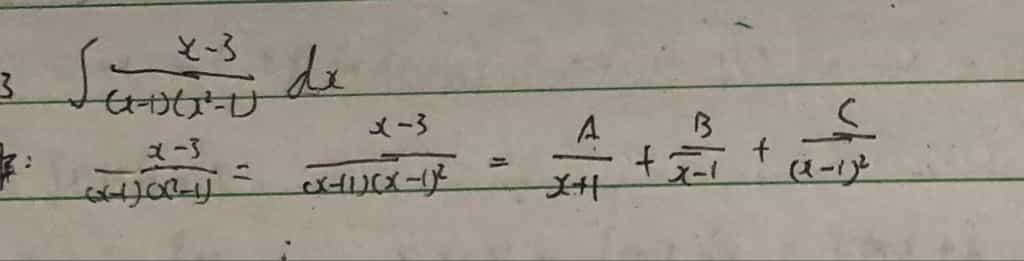 3 ∫ (x-3)/((x-1)(x²-1)) dx
解: (x-3)/((x-1)(x²-1)) = (x-3)/((x+1)(x-1)²) = A/(x+1) + B/(x-1) + C/(x-1)²